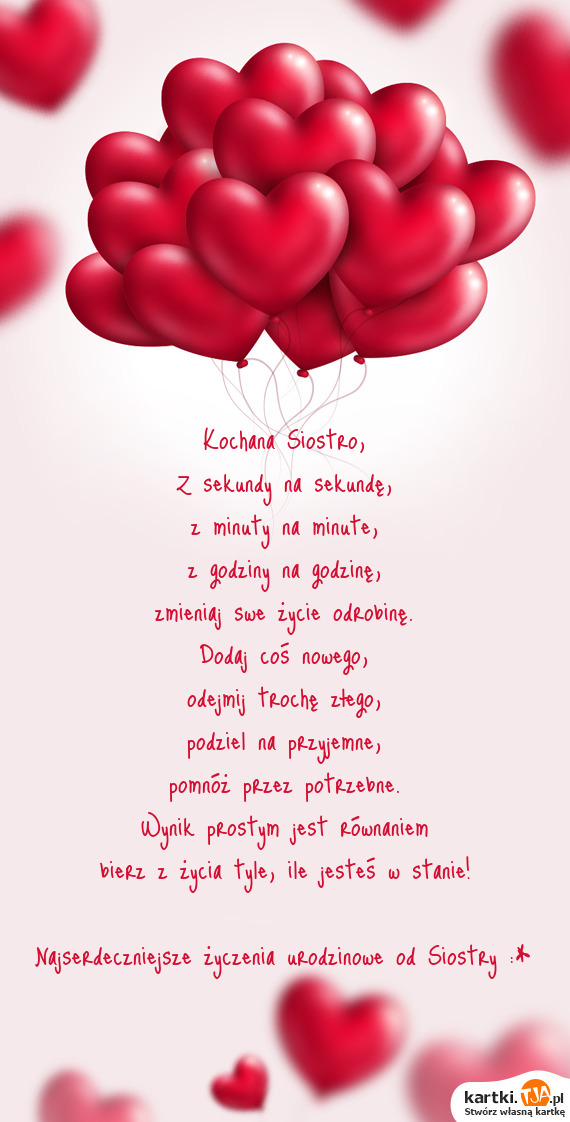 Kochana Siostro,
Z sekundy na sekundę,
z minuty na minute,
z godziny na godzinę,
zmieniaj swe życie odrobinę.
Dodaj coś nowego,
odejmij trochę złego,
podziel na przyjemne,
pomnóż przez potrzebne.
Wynik prostym jest równaniem
bierz z życia tyle, ile jesteś w stanie!
Najserdeczniejsze życzenia urodzinowe od Siostry :*
kartki.TJA.pl
Stwórz własną kartkę